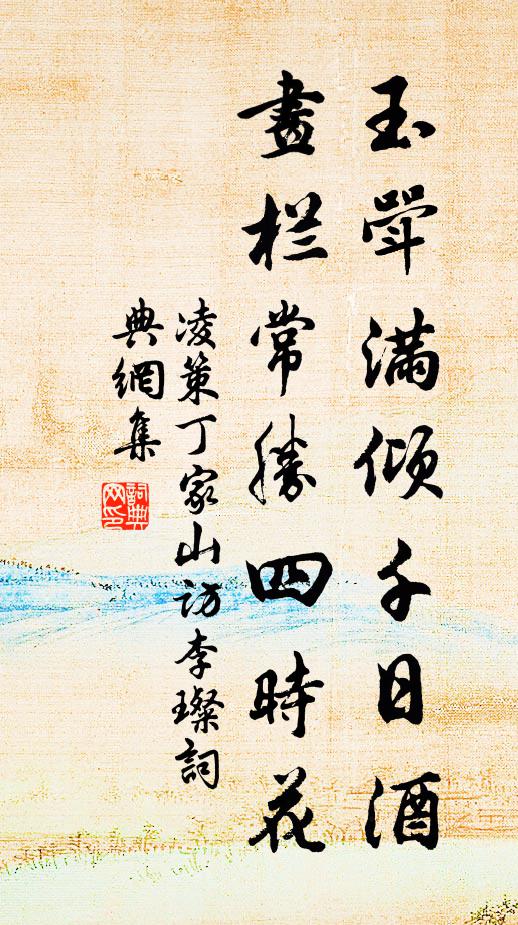 玉斝满倾千日酒
畫栏常勝四時花
凌策丁家山访李璨詞
典網集
詞典网印